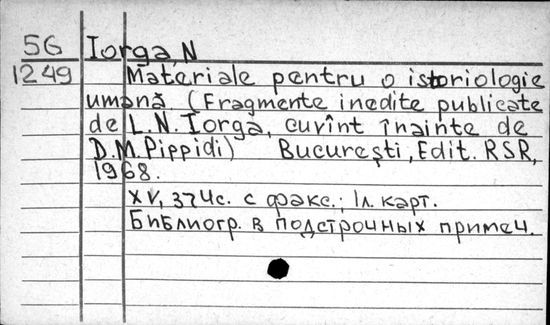 5G Iorga, N
1249 Materiale pentru o istoriologie
umană. (Fragmente inedite publicate
de L.N. Iorga, cuvînt înainte de
D.M. Pippidi) Bucureşti, Edit. RSR,
1968.
XV, 374с. с факс.; 1л. карт.
Библиогр. в подстрочных примеч.